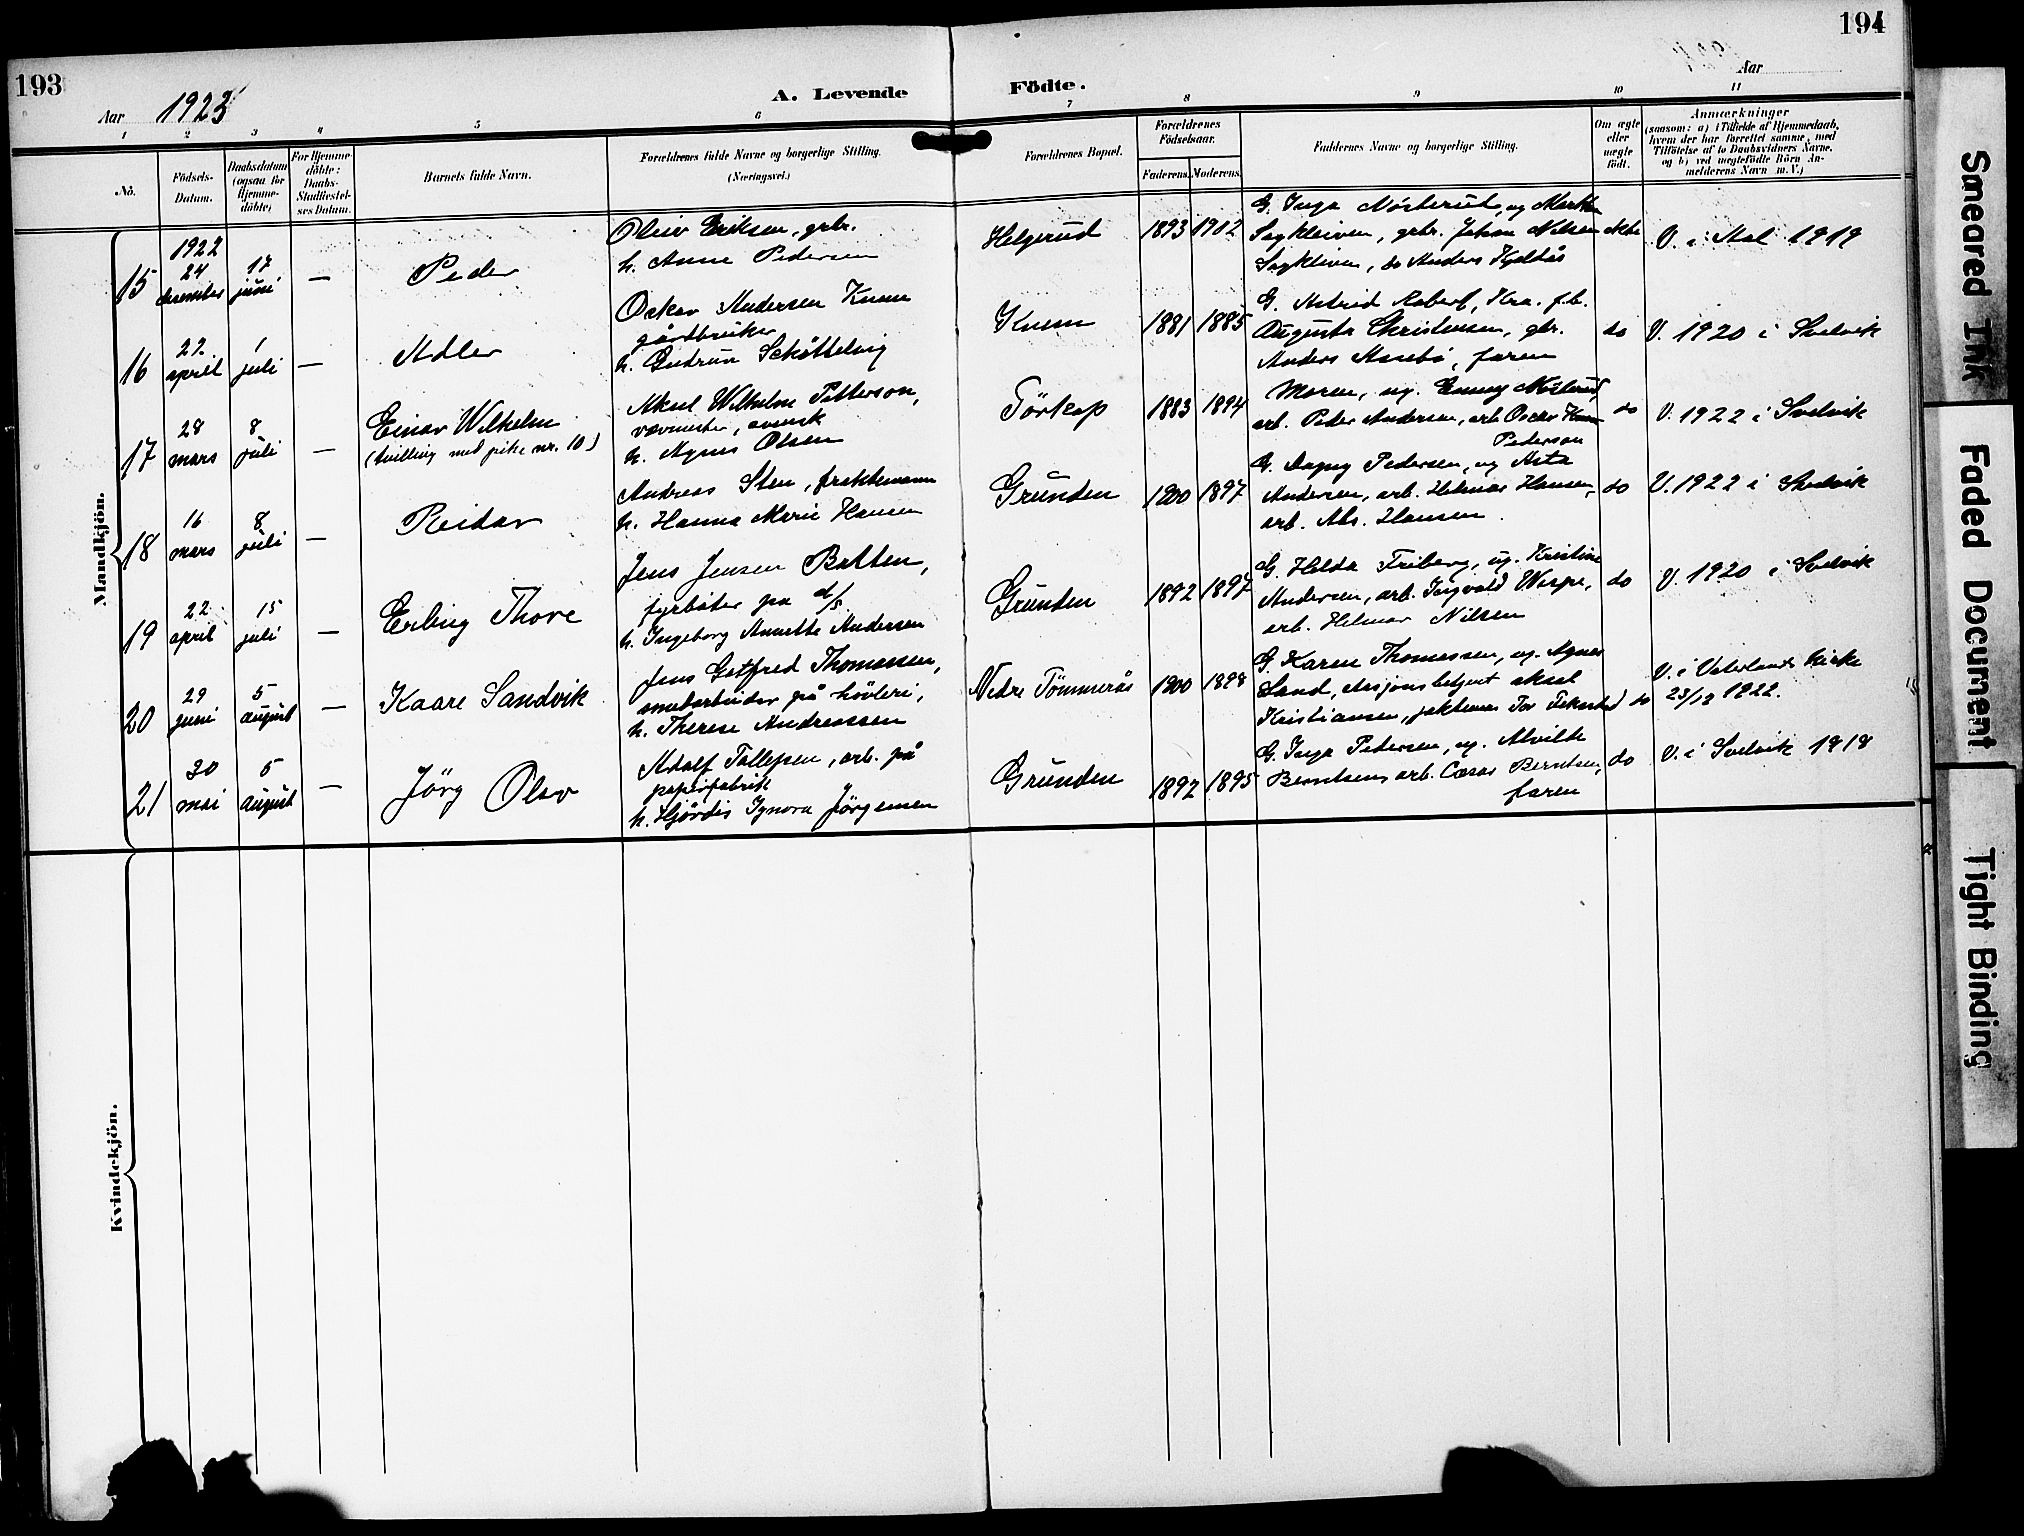 193
194
Aar 1923
A. Levende
Födte.
Aar
1
2
3
4
5
6
7
8
9
10
11
No.
Födsels-
Datum.
Daabsdatum
(ogsaa for
Hjemme-
döbte)
For Hjemme-
döbte:
Daabs-
Stadfæstel-
ses Datum.
Barnets fulde Navn.
Forældrenes fulde Navne og borgerlige Stilling.
(Næringsvei.)
Forældrenes Bopæl.
Forældrenes
Födselsaar.
Faderens.
Moderens.
Faddernes Navne og borgerlige Stilling.
Om ægte
eller
uægte
födt.
Anmærkninger
(saasom: a) i Tilfælde af Hjemmedaab,
hvem der har forrettet samme, med
Tilföielse af to Daabsvidners Navne,
og b) ved uægtefödte Börn An-
melderens Navn m. V.)
Mandkjön.
15
1922
24
desember
17
juni
—
Peder
Olav Eriksen, grbr.
h. Anne Pedersen
Helgerud
1893
1902
G. Inga Nösterud, ug Marthe
Sagkleiven, grbr. Johan Nilsen
Sagkleiven, do Anders
ekte
V. i Aal 1919
16
22
april
1
juli
—
Adler
Oskar Andersen Knem
gårdbruker
h. Gudrun
Knem
1881
1885
G. Astrid
Augusta Christensen, gbr.
Anders, faren
do
V. 1920 i Svelvik
17
28
mars
8
juli
—
Einar Wilhelm
(tvilling med pike nr. 10)
Aksel Wilhelm Petterson,
vævmester, svensk
h. Agnes Olsen
Törkop
1883
1894
Moren, ug. Emmy Nösterud,
arb. Peder Andersen, arb. Oscar
Pederson
do
V. 1922 i Svelvik
18
16
mars
8
juli
—
Reidar
Andreas Sten, fraktemann
h. Hanna Marie Hansen
Grunden
1900
1897
G. Dagny Pedersen, ug Asta
Andersen, arb. Helmar Hansen,
arb. Hansen
do
V. 1922 i Svelvik
19
22
april
15
juli
—
Erling Thore
Jens Jensen Batten,
fyrböter pa d/s
h. Ingeborg Annette Andersen
Grunden
1892
1897
G. Helda Friberg, ug. Kristine
Andersen, arb. Ingvald Wespe,
arb. Helmar Nilsen
do
V. 1920 i Svelvik
20
29
juni
5
august
—
Kaare Sandvik
Jens Gotfred Thomassen,
arbeider på hövleri,
h. Therese Andreassen
Nedre Tömmerås
1900
1898
G. Karen Thomassen, ug. Agnes
Sand, betjent aksel
Kristiansen,
do
V. i Vaterlands kirke
23/12 1922.
21
30
mai
5
august
—
Jörg Olav
Adolf Tollefsen, arb. på
papirfabrik
h. Hjördis Ignora Jörgensen
Grunden
1892
1895
G. Inga Pedersen, ug. Alvilde
Berntsen, arb. Cæsar Berntsen,
faren
do
V. i Svelvik 1918
Kvindekjön.
Smeared Ink
Faded Document
Tight Binding